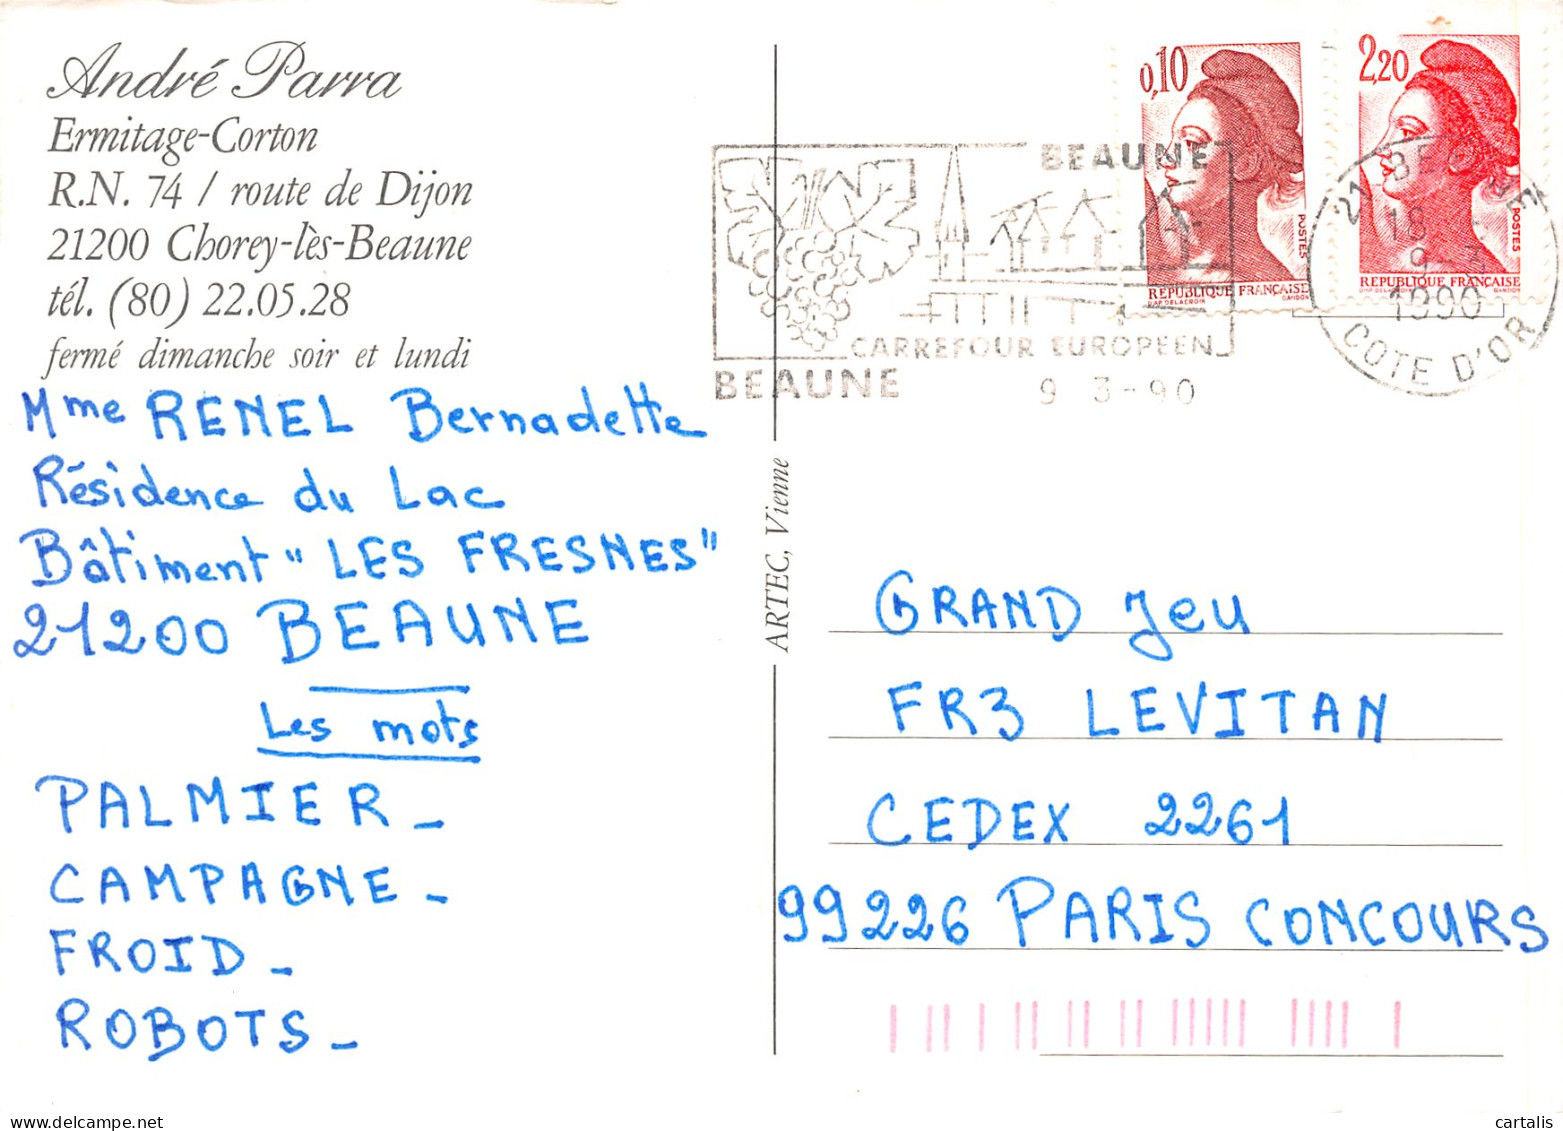 André Parra
Ermitage-Corton
R.N. 74 / route de Dijon
21200 Chorey-lès-Beaune
tél. (80) 22.05.28
fermé dimanche soir et lundi
Mme RENEL Bernadette
Résidence du Lac
Bâtiment "LES FRESNES"
21200 BEAUNE
Les mots
PALMIER -
CAMPAGNE -
FROID -
ROBOTS -
ARTEC, Vienne
0,10
POSTES
REPUBLIQUE FRANÇAISE
DAP DELACROIX GANDON
2,20
POSTES
REPUBLIQUE FRANÇAISE
DAP DELACROIX GANDON
BEAUNE
CARREFOUR EUROPEEN
BEAUNE
9 3-90
21
18
9-3
1990
COTE D'OR
GRAND Jeu
FR3 LEVITAN
CEDEX 2261
99226 PARIS CONCOURS
cartalis